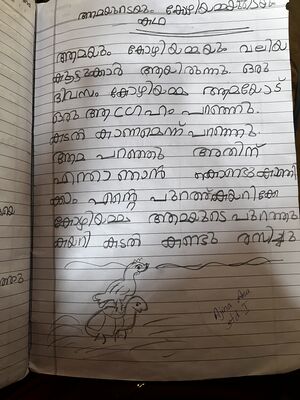 ആമയുടെയും കോഴിയമ്മയുടെയും
കഥ
ആമയും കോഴിയമ്മയും വലിയ
കൂട്ടുകാർ ആയിരുന്നു. ഒരു
ദിവസം കോഴിയമ്മ ആമയോട്
ഒരു ആഗ്രഹം പറഞ്ഞു.
കടൽ കാണണമെന്ന് പറഞ്ഞു.
ആമ പറഞ്ഞു അതിന്
എന്താ ഞാൻ കൊണ്ടുകാണി
ക്കാം എന്റെ പുറത്ത് കയറിക്കോ
കോഴിയമ്മ ആമയുടെ പുറത്തു
കയറി കടൽ കണ്ടു രസിച്ചു
std I